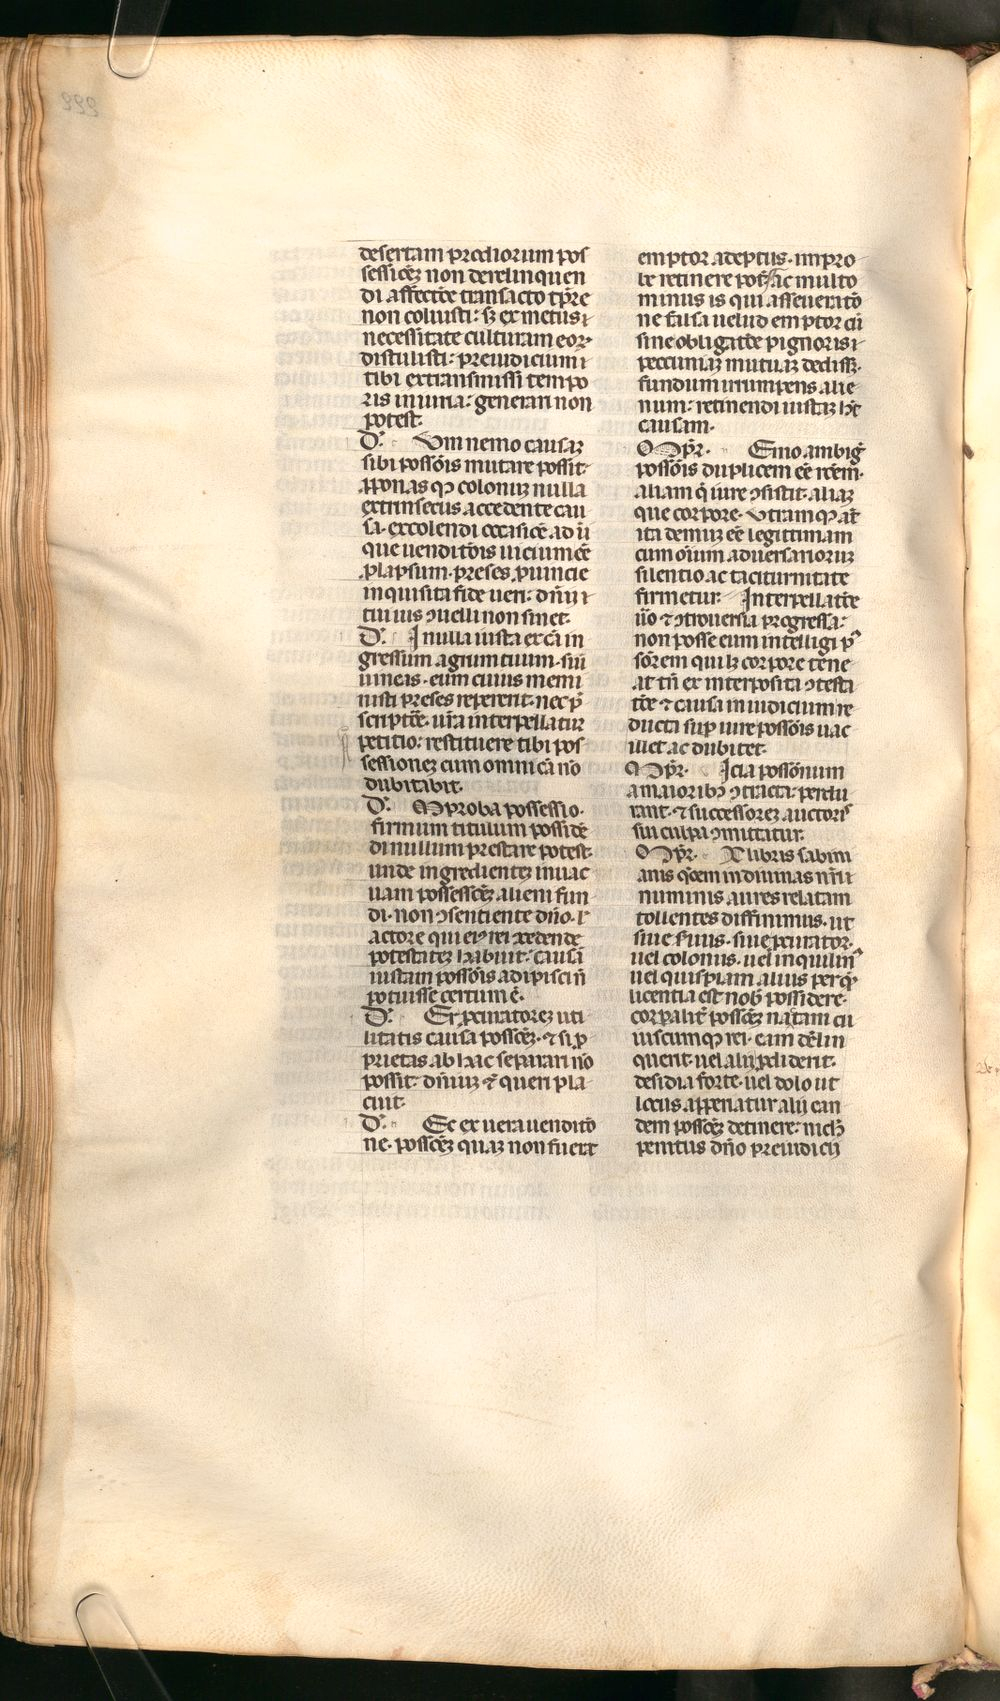 desertam prediorum pos
sessionem non derelinquen
di affectione transacto tempore
non coluisti: sed ex metus
necessitate culturam eorum
distulisti: preiudicium
tibi ex transmissi tempo
ris iniuria: generari non
potest.
D. Cum nemo causam
sibi possessionis mutare possit.
proponas que colonum nulla
extrinsecus accedente cau
sa. excolendi occasione. ad ini
que venditionis vicium esse
prolapsum. preses provincie
inquisita fide veri: dominii
tui ius convelli non sinet.
D. In nulla iusta ex causa in
gressum agrum tuum. sui
iuris eum
iusti preses repererit. nec
scriptione. interpellatur
petitio: restituere tibi pos
sessionem cum omni causa non
dubitabit.
D. Improba possessio.
firmum titulum posside
di nullum prestare potest.
unde ingredientem in vac
uam possessionem alieni fun
di. non consentiente domino. vel
actore qui eius rei concedende
potestatem habuit: causam
iustam possessionis adipisci non
potuisse certum est.
D. Per procuratorem uti
litatis causa possessionem. et si pro
prietas ab hac separari non
possit: dominium etiam queri pla
cuit.
D. Nec ex vera venditio
ne. possessionem quam non fuerat
emptor adeptus. impro
be retinere potest. ac multo
minus is qui asseveratio
ne falsa velud emptor cum
sine obligatione pignoris
peccuniam mutuam dedisset.
fundum irrumpens alie
num: retinendi iustam habet
causam.
Imperator. Nemo ambigit
possessionis duplicem esse rationem.
aliam que iure consistit. aliam
que corpore. utramque autem
ita demum esse legittimam
cum omnium adversariorum
silentio ac taciturnitate
firmetur. Interpellatione
vero et controversia progressa:
non posse eum intelligi pos
sessorem qui licet corpore tene
at tamen ex interposita contesta
tione et causa in iudicium re
ducta super iure possessionis vac
illet ac dubitet.
Imperator. Vicia possessionum
a maioribus contracta: perdu
rant. et successorem auctoris
sui culpa committatur.
Imperator. Ex libris sabini
anis questionem in divinas nostri
numinis aures relatam
tollentes diffinimus. ut
sive servus. sive procurator.
vel colonus. vel inquilinus
vel quispiam alius per quem
licentia est nobis possidere.
corporaliter possessionem nactam cu
iuscumque rei. eam dereliqu
querit. vel alii prodiderit.
desidia forte. vel dolo ut
locus aperiatur alii ean
dem possessionem detinere: nichil
penitus domino preiudicii